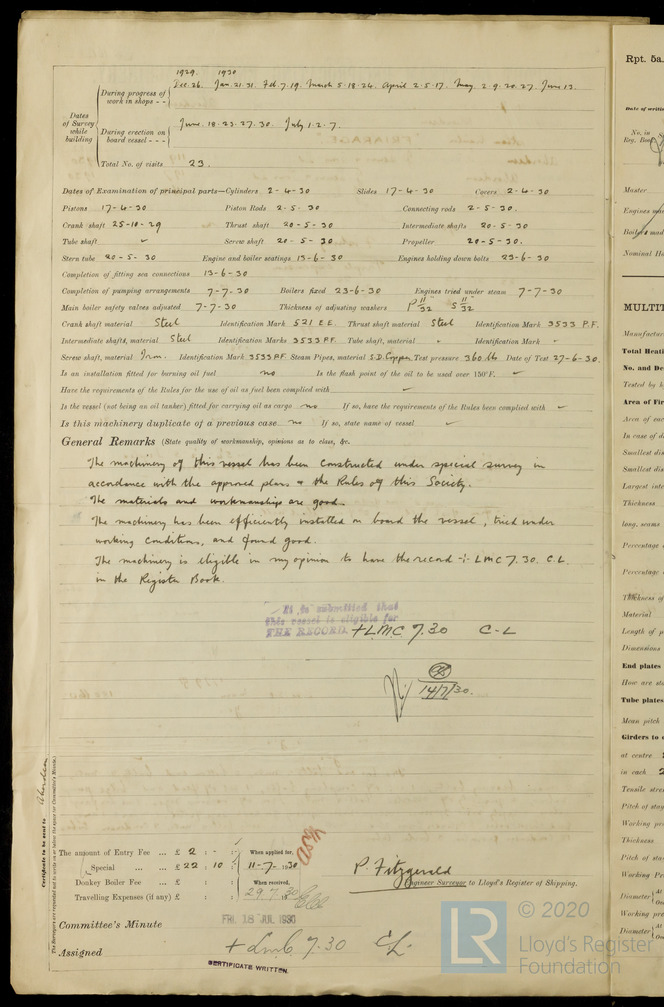 1929. 1930
Dec. 26. Jan. 21. 31. Feb. 7. 19. March 5. 18. 26. April 2. 5. 17. May. 2. 9. 20. 27. June 13.
During progress of work in shops - -
Dates of Survey while building
During erection on board vessel - - -
June. 18. 23. 27. 30. July 1. 2. 7.
Total No. of visits 23.
Dates of Examination of principal parts—Cylinders 2-4-30 Slides 17-4-30 Covers 2-4-30
Pistons 17-4-30 Piston Rods 2-5-30 Connecting rods 2-5-30.
Crank shaft 25-10-29 Thrust shaft 20-5-30 Intermediate shafts 20-5-30
Tube shaft ✓ Screw shaft 20-5-30 Propeller 20-5-30.
Stern tube 20-5-30 Engine and boiler seatings 13-6-30 Engines holding down bolts 23-6-30
Completion of fitting sea connections 13-6-30
Completion of pumping arrangements 7-7-30 Boilers fixed 23-6-30 Engines tried under steam 7-7-30
Main boiler safety valves adjusted 7-7-30 Thickness of adjusting washers P 11/32" S 11/32"
Crank shaft material Steel Identification Mark 521 E.E. Thrust shaft material Steel Identification Mark 3533 P.F.
Intermediate shafts, material Steel Identification Marks 3533 P.F. Tube shaft, material Identification Mark
Screw shaft, material Iron. Identification Mark 3533 P.F. Steam Pipes, material S.D. Copper Test pressure 360 lb Date of Test 27-6-30.
Is an installation fitted for burning oil fuel no Is the flash point of the oil to be used over 150°F. ✓
Have the requirements of the Rules for the use of oil as fuel been complied with ✓
Is the vessel (not being an oil tanker) fitted for carrying oil as cargo no If so, have the requirements of the Rules been complied with ✓
Is this machinery duplicate of a previous case no If so, state name of vessel ✓
General Remarks (State quality of workmanship, opinions as to class, &c.
The machinery of this vessel has been constructed under special survey in
accordance with the approved plans & the Rules of this Society.
The materials and workmanship are good.
The machinery has been efficiently installed on board the vessel, tried under
working conditions, and found good.
The machinery is eligible in my opinion to have the record + LMC 7.30. C.L.
in the Register Book.
It is submitted that
this vessel is eligible for
THE RECORD. + LMC 7.30 C-L
14/7/30.
Certificate to be sent to Aberdeen
The Surveyors are requested not to write on or below the space for Committee's Minute.
The amount of Entry Fee ... £ 2 : - : When applied for,
Special ... ... £ 22 : 10 : 11-7-1930
Donkey Boiler Fee ... £ : : When received,
Travelling Expenses (if any) £ : : 29.7.30
P. Fitzgerald
Engineer Surveyor to Lloyd's Register of Shipping.
Committee's Minute FRI. 18 JUL 1930
Assigned + LMC 7.30 CL.
CERTIFICATE WRITTEN.
LR
© 2020
Lloyd's Register
Foundation
Rpt. 5a.
Date of writi
No. in
Reg. Book
Master
Engines
Boilers mad
Nominal H
MULTIT
Manufactur
Total Heati
No. and De
Tested by h
Area of Fir
Area of eac
In case of d
Smallest dis
Smallest dis
Largest inte
Thickness
long. seams
Percentage
Percentage
Thickness of
Material
Length of p
Dimensions
End plates
How are sta
Tube plates
Mean pitch
Girders to c
at centre
in each 2
Tensile stre
Pitch of stay
Working pre
Thickness
Pitch of sta
Working Pr
Diameter { At
Working pre
Diameter { At